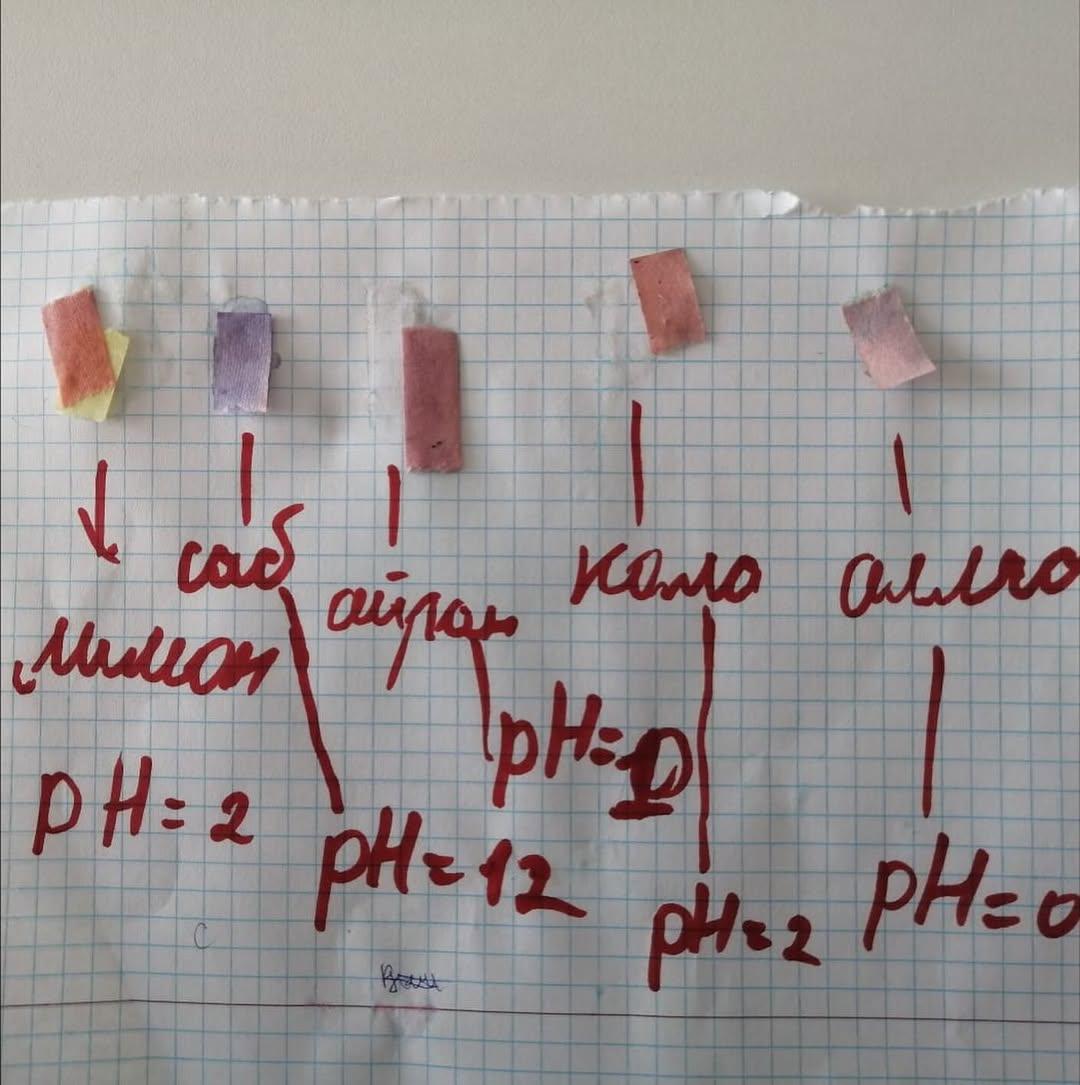 саб
айран
кола
лимон
pH=2
pH=12
pH=
pH=2
pH=0
с